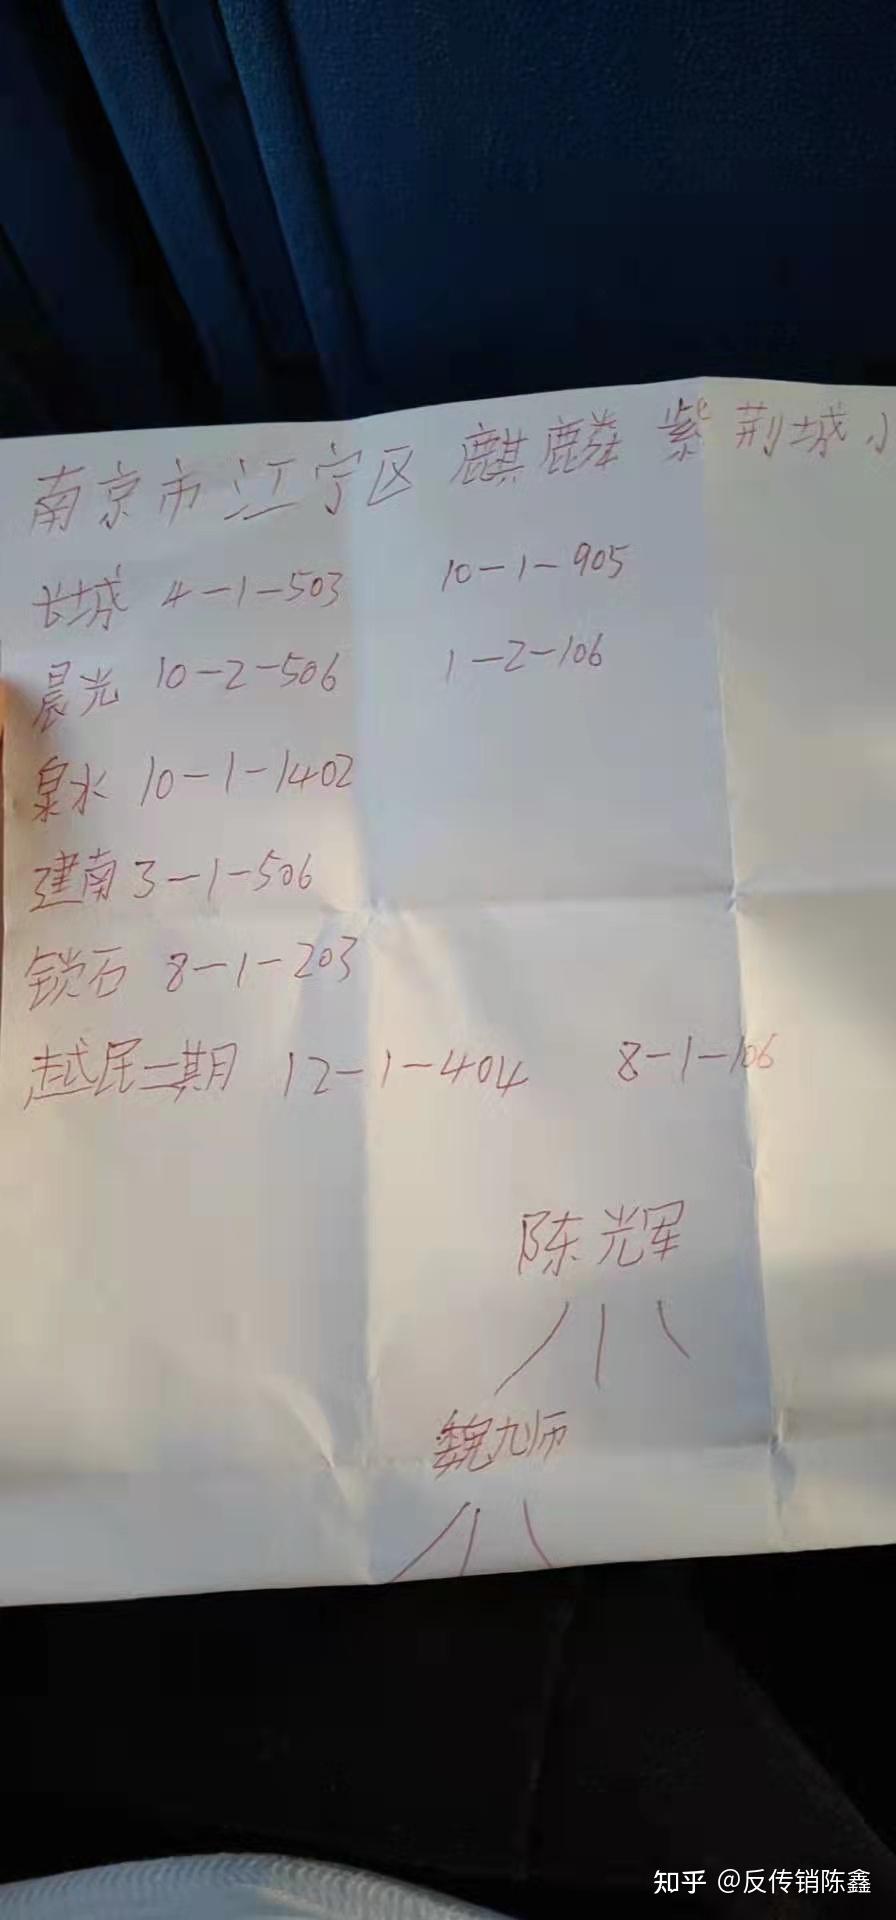 南京市江宁区 麒麟 紫荆城 小
长城 4-1-503 10-1-905
晨光 10-2-506 1-2-106
泉水 10-1-1402
建南 3-1-506
锁石 8-1-203
越民二期 12-1-404 8-1-106
陈光军
魏九师
知乎 @反传销陈鑫